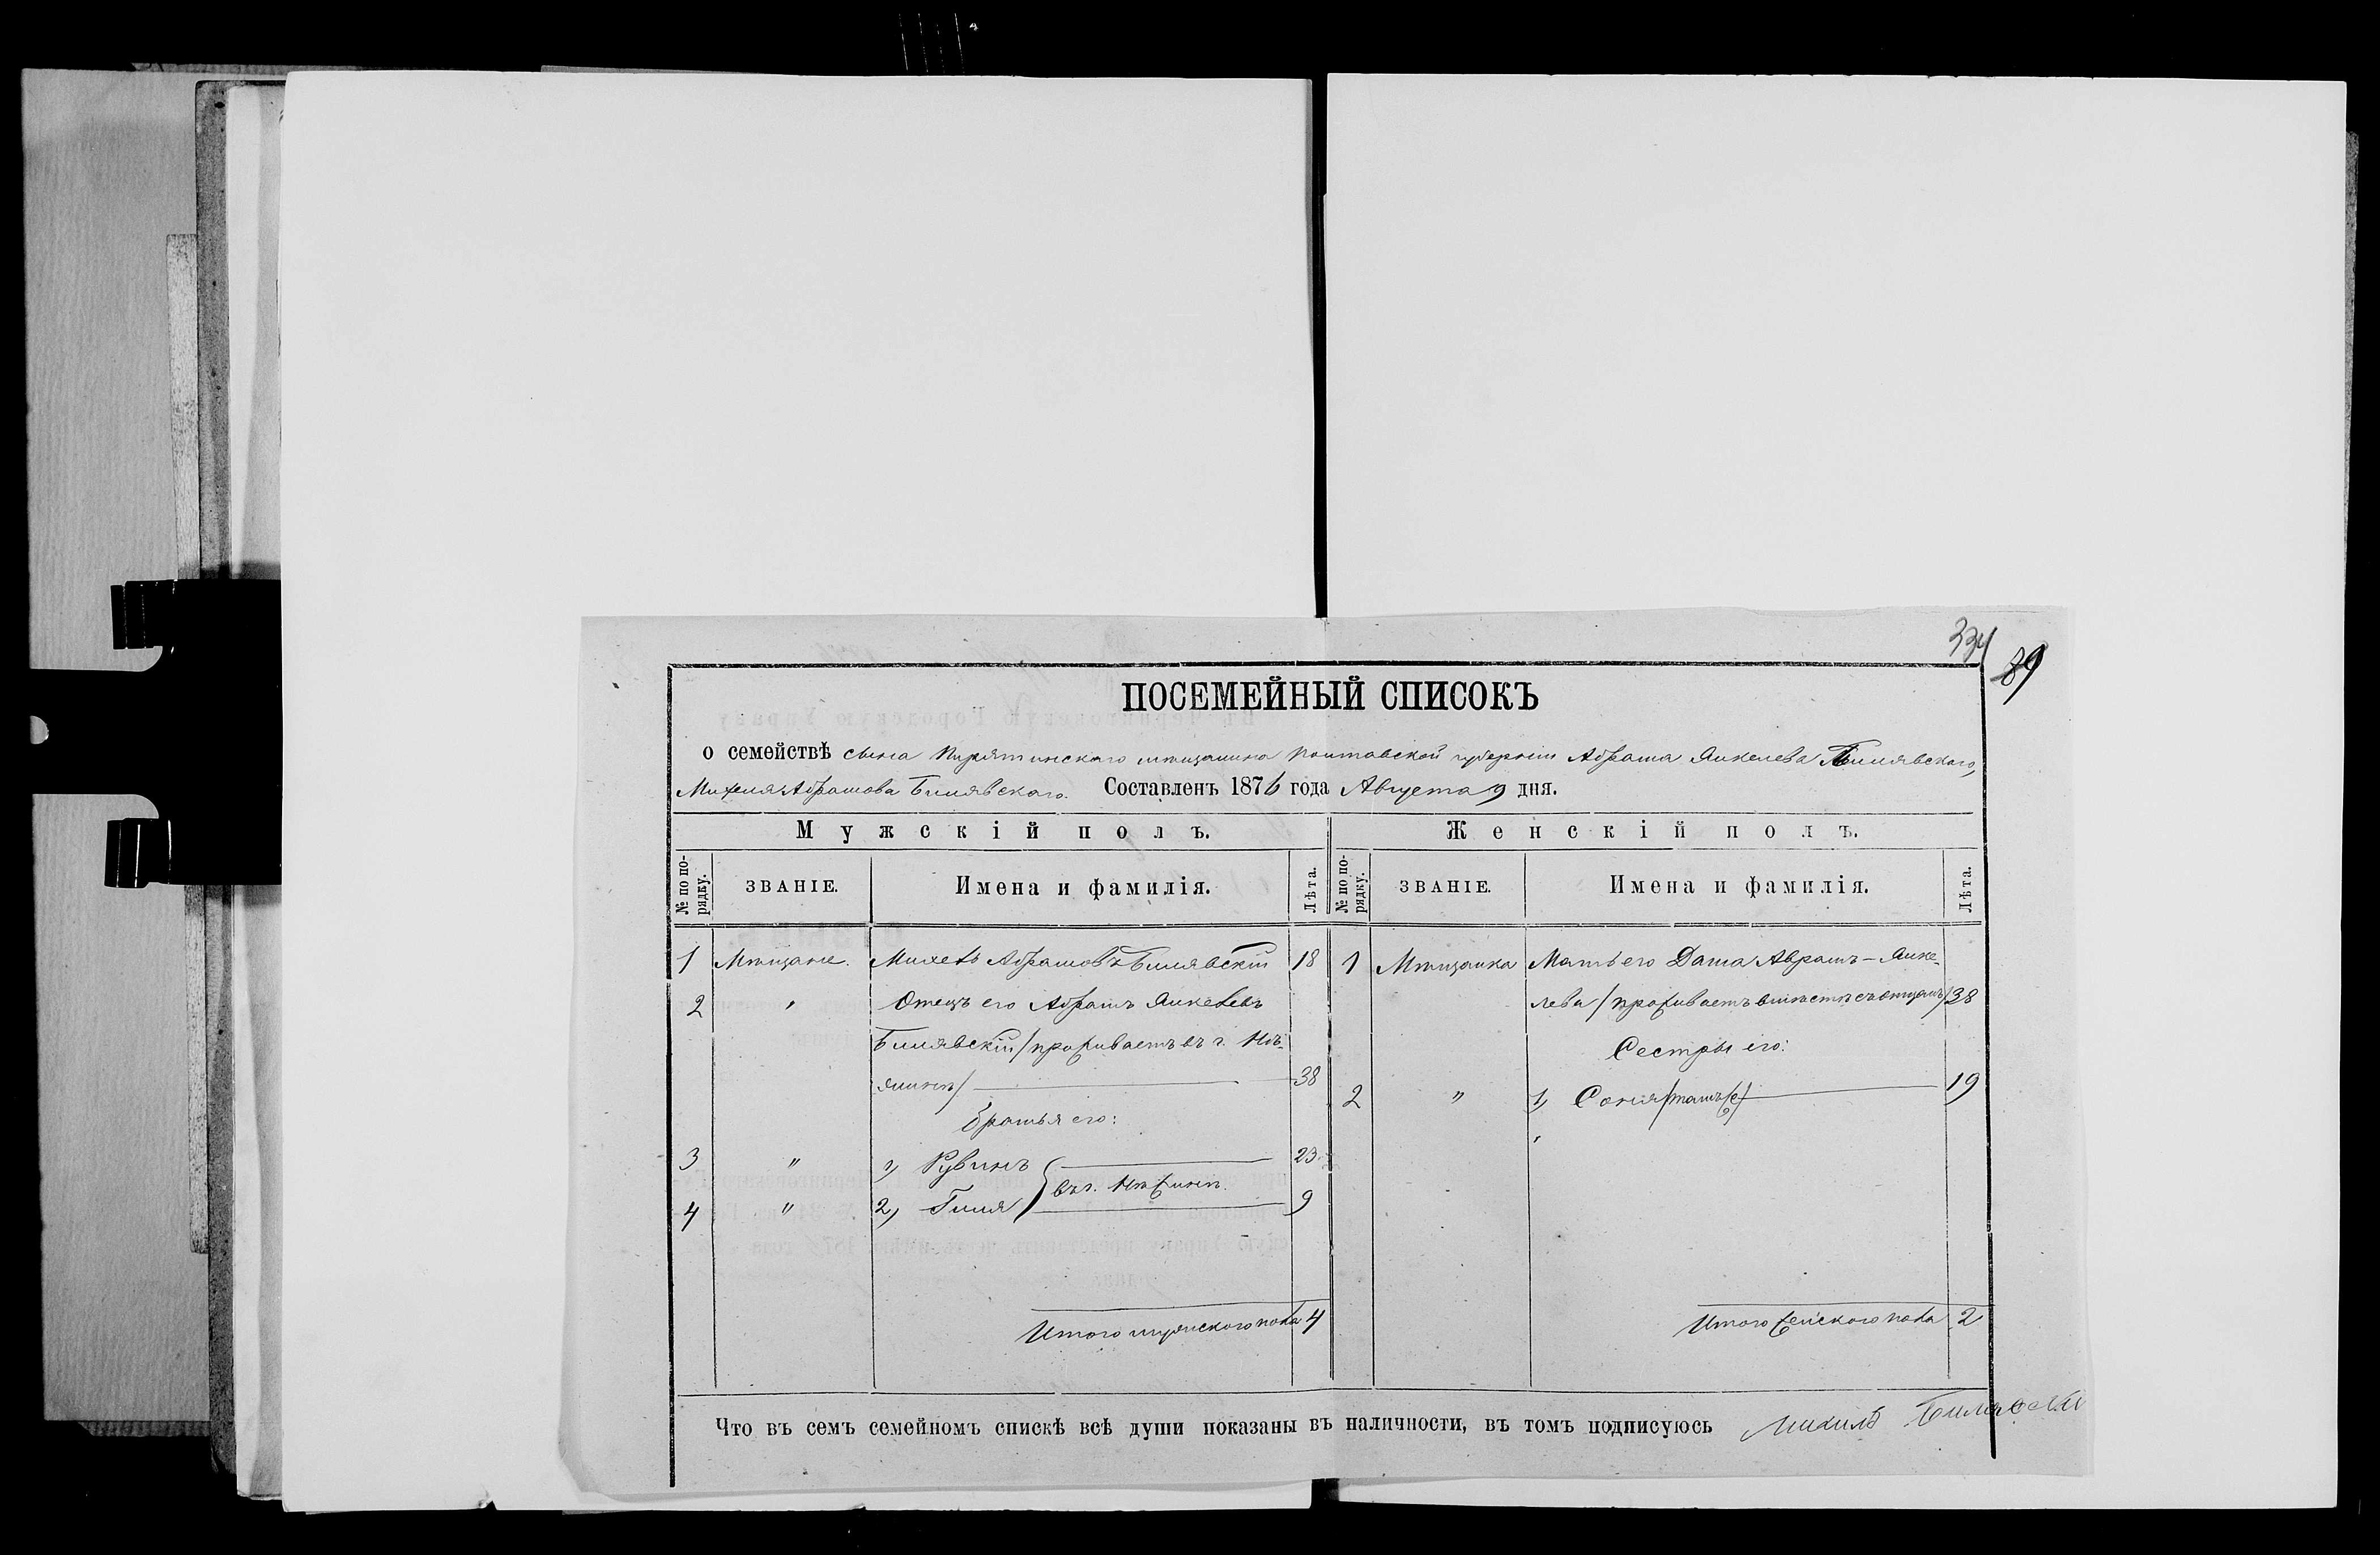 334
89
ПОСЕМЕЙНЫЙ СПИСОКЪ
о семействѣ сына Пирятинскаго мѣщанина Полтавской губерніи Абрама Янкелева Билявскаго,
Михеля Абрамова Билявскаго. Составленъ 1876 года Августа 9 дня.
Мужскій полъ.
Женскій полъ.
№ по порядку.
ЗВАНІЕ.
Имена и фамилія.
Лѣта.
№ по порядку.
ЗВАНІЕ.
Имена и фамилія.
Лѣта.
1 Мѣщане. Михель Абрамовъ Билявскій 18
2 " Отецъ его Абрамъ Янкелевъ
Билявскій /проживаетъ въ г.
38
Братья его:
3 " 1, Рувинъ 23
въ г. Нѣжинѣ.
4 " 2, Гиля 9
Итого мужскаго пола 4
1 Мѣщанка Мать его Даша Аврамъ-Янке-
лева /проживаетъ вмѣстѣ съ отцомъ/ 38
Сестры его:
2 " 1, Соня /тамъ же/ 19
Итого женскаго пола 2
Что въ семъ семейномъ спискѣ всѣ души показаны въ наличности, въ томъ подписуюсь Михиль